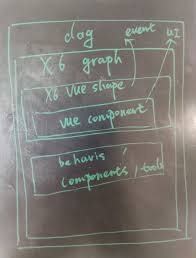 dag event UI
X6 graph
X6 Vue shape
Vue component
behavis
components, tools